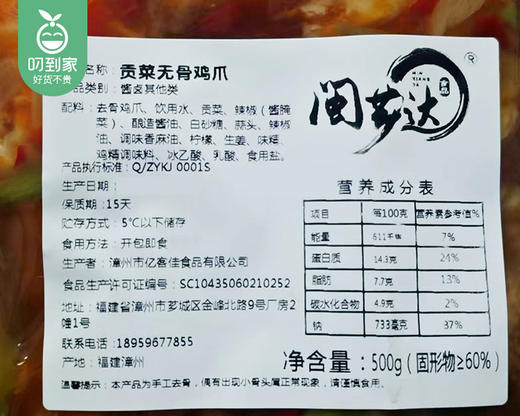 叨到家
好货不贵
名称：贡菜无骨鸡爪
品类别：酱卤其他类
配料：去骨鸡爪、饮用水、贡菜、辣椒（酱腌
菜）、酿造酱油、白砂糖、蒜头、辣椒
油、调味香麻油、柠檬、生姜、味精、
鸡精调味料、冰乙酸、乳酸、食用盐。
产品执行标准：Q/ZYKJ 0001S
生产日期：
保质期：15天
贮存方式：5℃以下储存
食用方法：开包即食
生产者：漳州市亿客佳食品有限公司
食品生产许可证编号：SC10435060210252
地址：福建省漳州市芗城区金峰北路9号厂房2
幢1号
联系电话：18959677855
产地：福建漳州
温馨提示：本产品为手工去骨，偶有出现小骨头属正常现象，请谨慎食用。
MIN XIANG DA
闽芗达
®
营养成分表
项目 每100克 营养素参考值%
能量 611千焦 7%
蛋白质 14.3克 24%
脂肪 7.7克 13%
碳水化合物 4.9克 2%
钠 733毫克 37%
净含量：500g（固形物≥60%）